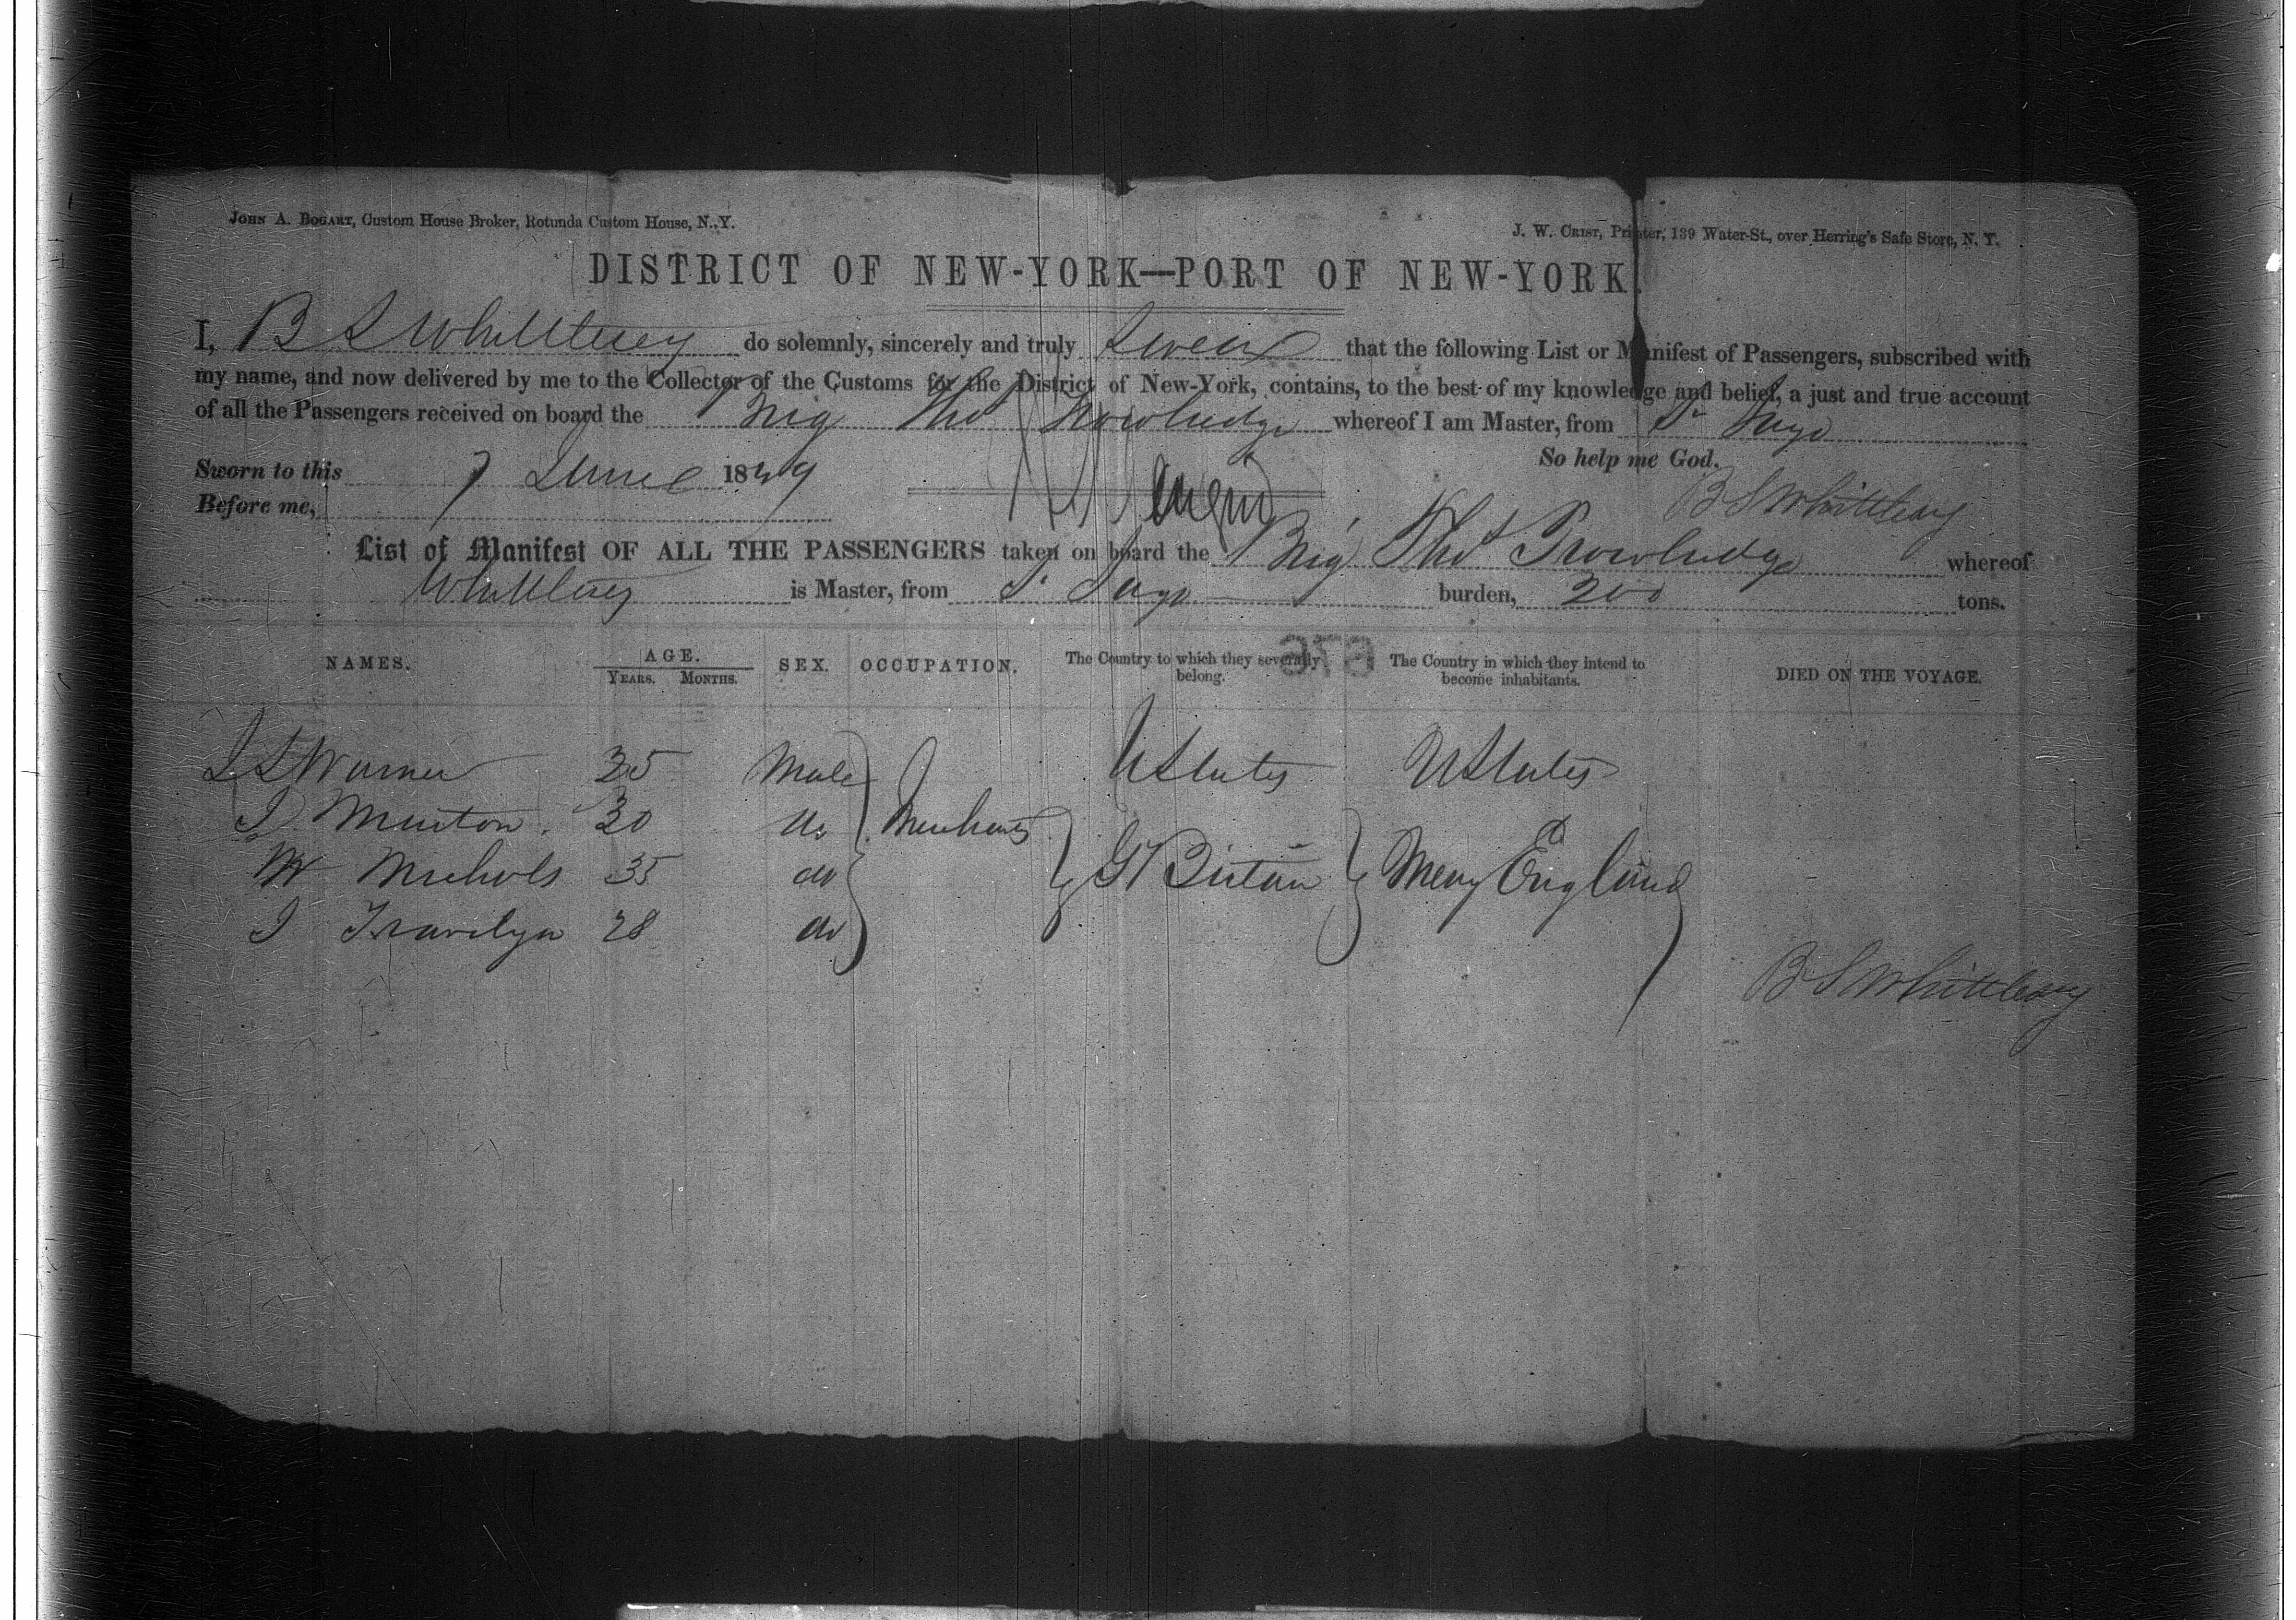 JOHN A. BOGART, Custom House Broker, Rotunda Custom House, N. Y.
J. W. CRIST, Printer, 139 Water-St., over Herring's Safe Store, N. Y.
DISTRICT OF NEW-YORK—PORT OF NEW-YORK.
I, B S Whittlesey do solemnly, sincerely and truly swear that the following List or Manifest of Passengers, subscribed with
my name, and now delivered by me to the Collector of the Customs for the District of New-York, contains, to the best of my knowledge and belief, a just and true account
of all the Passengers received on board the Brig Thos Trowbridge whereof I am Master, from St Jago
So help me God.
Sworn to this 7 June 1849
B S Whittlesey
Before me,
List of Manifest OF ALL THE PASSENGERS taken on board the Brig Thos Trowbridge whereof
Whittlesey is Master, from St Jago burden, 200 tons.
NAMES. AGE. SEX. OCCUPATION. The Country to which they severally belong. The Country in which they intend to become inhabitants. DIED ON THE VOYAGE.
YEARS. MONTHS.
Warner 35 Male U States U States
J Minton 30 do Merchants
W Nichols 35 do Gt Britain England
J 28 do
B S Whittlesey